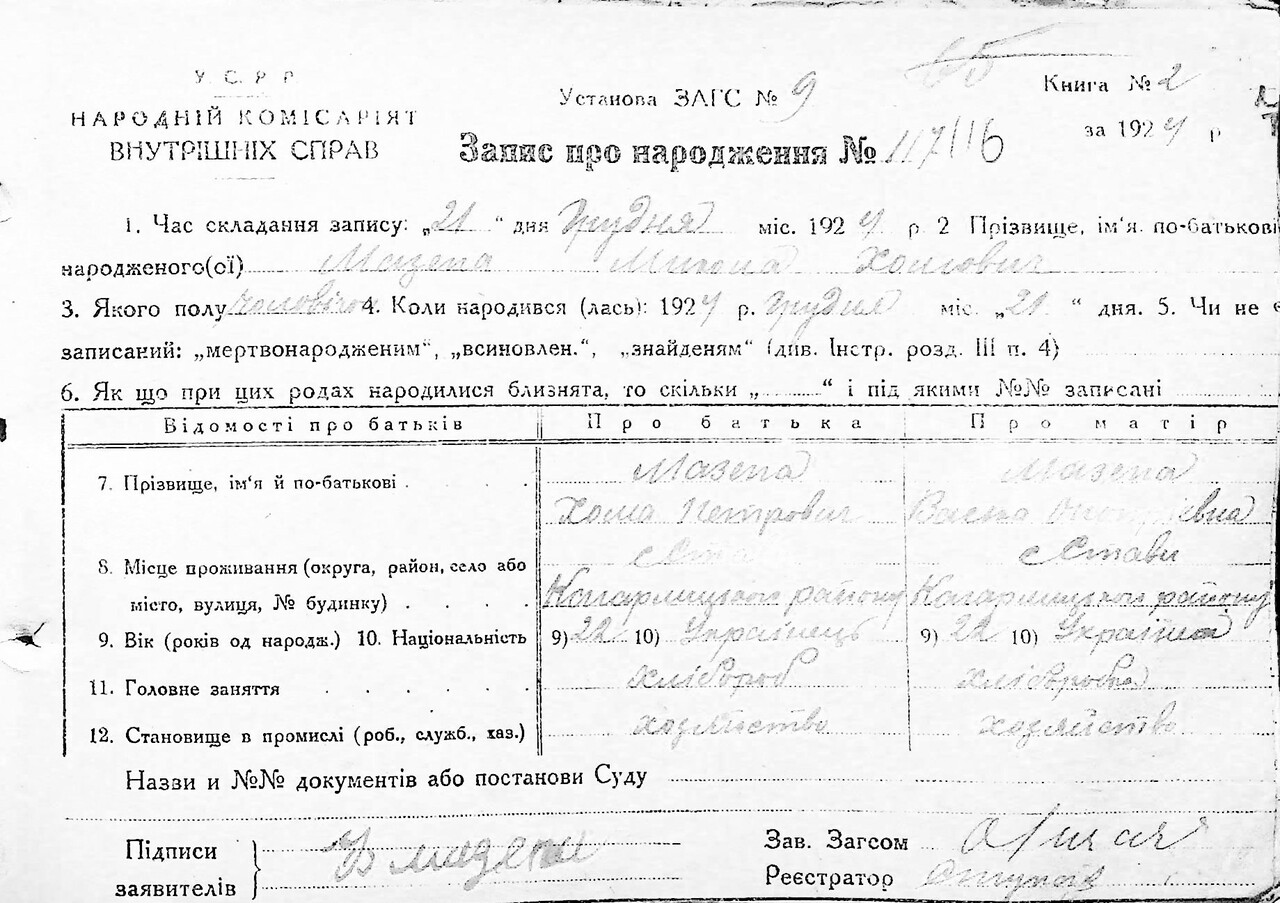 У. С. Р. Р
НАРОДНІЙ КОМІСАРІЯТ
ВНУТРІШНІХ СПРАВ
Установа ЗАГС № 9
Книга № 2
за 1924 р
Запис про народження № 117/116
1. Час складання запису: „21" дня Грудня міс. 1924 р. 2 Прізвище, ім'я по-батькові
народженого(ої) Мазепа Микола Хомович
3. Якого полу чоловічої 4. Коли народився (лась): 1924 р. Грудня міс. „21" дня. 5. Чи не є
записаний: „мертвонародженим", „всиновлен.", „знайденям" (див. Інстр. розд. III п. 4)
6. Як що при цих родах народилися близнята, то скільки „ " і під якими №№ записані
Відомості про батьків Про батька Про матір
7. Прізвище, ім'я й по-батькові Мазепа Хома Петрович Мазепа
8. Місце проживання (округа, район, село або с Ста с Стави
місто, вулиця, № будинку) Кагарлицького району Кагарлицького району
9. Вік (років од народж.) 10. Національність 9) 22 10) Українець 9) 22 10) Українка
11. Головне заняття хлібороб хліборобка
12. Становище в промислі (роб., служб., хаз.) хозяйство хозяйство
Назви и №№ документів або постанови Суду
Підписи
заявителів
Зав. Загсом
Реєстратор